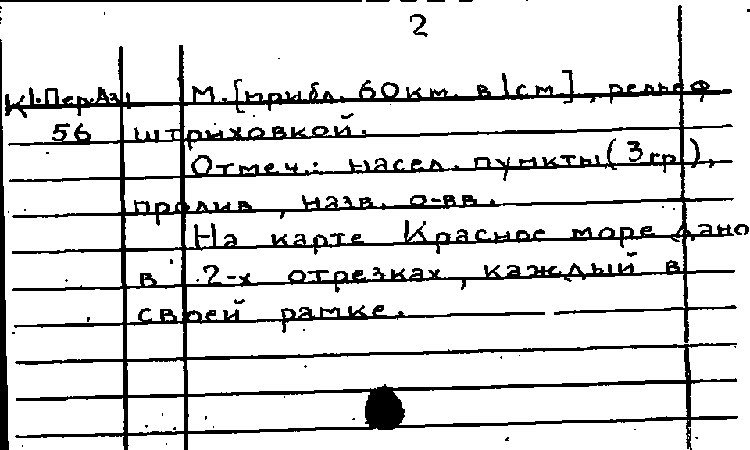 2
К1.Пер.Аз. М.[прибл. 60км. в 1см], рельеф
56 штриховкой.
Отмеч.: насел. пункты(3гр),
пролив, назв. о-вв.
На карте Красное море дано
в 2-х отрезках, каждый в
своей рамке.